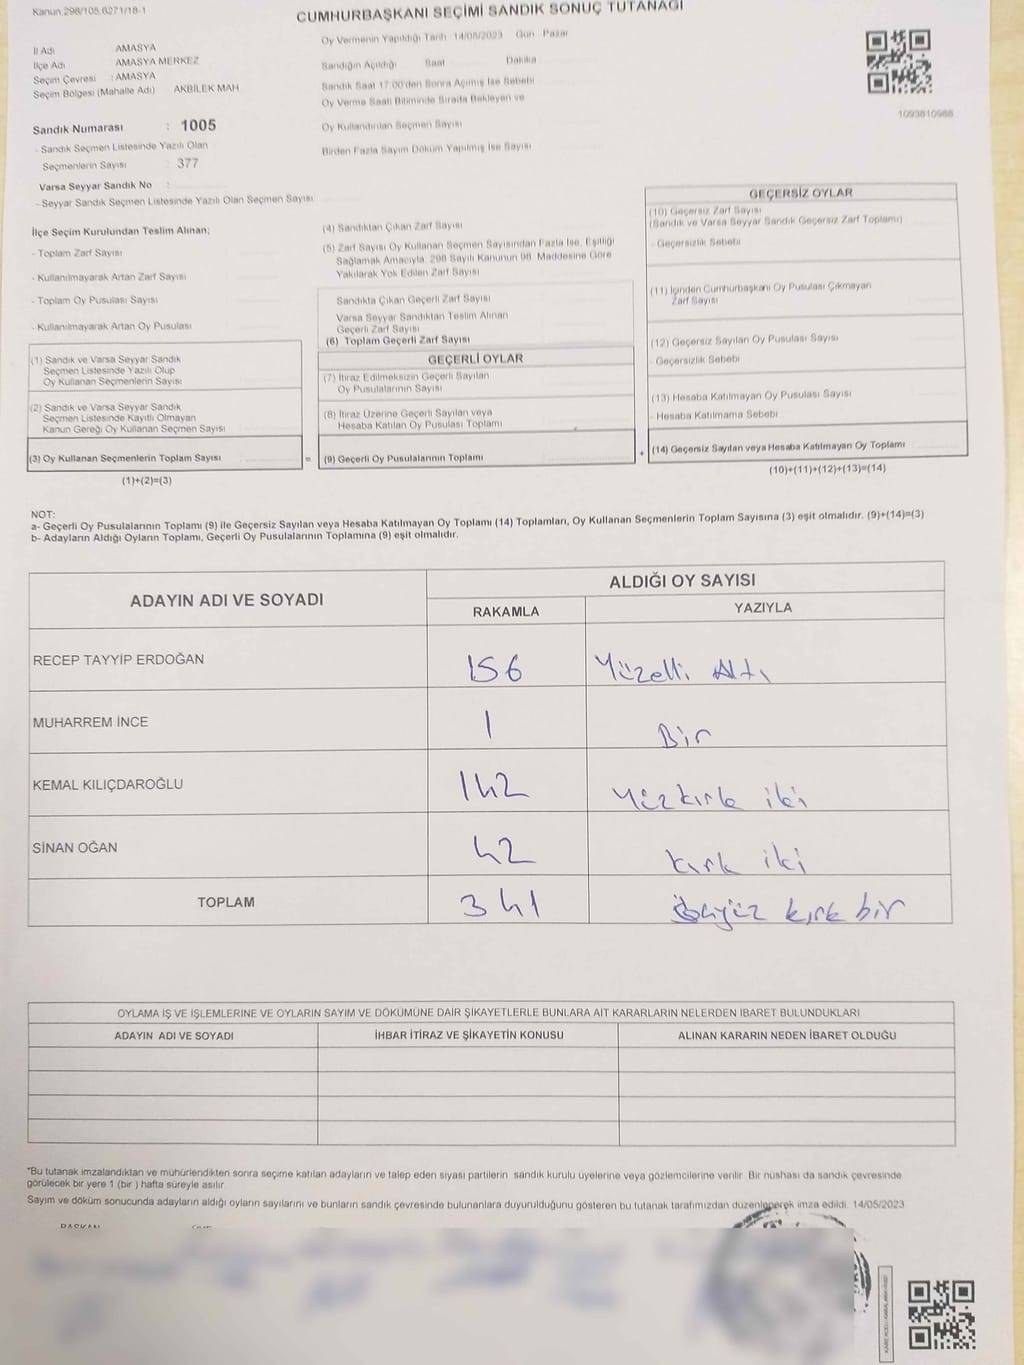 Kanun:298/105.6271/18-1
CUMHURBAŞKANI SEÇİMİ SANDIK SONUÇ TUTANAĞI
İl Adı AMASYA
İlçe Adı AMASYA MERKEZ
Seçim Çevresi : AMASYA
Seçim Bölgesi (Mahalle Adı) AKBİLEK MAH
Sandık Numarası : 1005
- Sandık Seçmen Listesinde Yazılı Olan
Seçmenlerin Sayısı : 377
Varsa Seyyar Sandık No :
- Seyyar Sandık Seçmen Listesinde Yazılı Olan Seçmen Sayısı
Oy Vermenin Yapıldığı Tarih 14/05/2023 Gün Pazar
Sandığın Açıldığı Saat Dakika
Sandık Saat 17:00'den Sonra Açılmış İse Sebebi
Oy Verme Saati Bitiminde Sırada Bekleyen ve
Oy Kullandırılan Seçmen Sayısı
Birden Fazla Sayım Döküm Yapılmış İse Sayısı
1093810988
İlçe Seçim Kurulundan Teslim Alınan;
- Toplam Zarf Sayısı
- Kullanılmayarak Artan Zarf Sayısı
- Toplam Oy Pusulası Sayısı
- Kullanılmayarak Artan Oy Pusulası
(1) Sandık ve Varsa Seyyar Sandık
Seçmen Listesinde Yazılı Olup
Oy Kullanan Seçmenlerin Sayısı
(2) Sandık ve Varsa Seyyar Sandık
Seçmen Listesinde Kayıtlı Olmayan
Kanun Gereği Oy Kullanan Seçmen Sayısı
(3) Oy Kullanan Seçmenlerin Toplam Sayısı
(1)+(2)=(3)
(4) Sandıktan Çıkan Zarf Sayısı
(5) Zarf Sayısı Oy Kullanan Seçmen Sayısından Fazla İse, Eşitliği
Sağlamak Amacıyla, 298 Sayılı Kanunun 98. Maddesine Göre
Yakılarak Yok Edilen Zarf Sayısı
Sandıkta Çıkan Geçerli Zarf Sayısı
Varsa Seyyar Sandıktan Teslim Alınan
Geçerli Zarf Sayısı
(6) Toplam Geçerli Zarf Sayısı
GEÇERLİ OYLAR
(7) İtiraz Edilmeksizin Geçerli Sayılan
Oy Pusulalarının Sayısı
(8) İtiraz Üzerine Geçerli Sayılan veya
Hesaba Katılan Oy Pusulası Toplamı
= (9) Geçerli Oy Pusulalarının Toplamı
GEÇERSİZ OYLAR
(10) Geçersiz Zarf Sayısı
(Sandık ve Varsa Seyyar Sandık Geçersiz Zarf Toplamı)
- Geçersizlik Sebebi
(11) İçinden Cumhurbaşkanı Oy Pusulası Çıkmayan
Zarf Sayısı
(12) Geçersiz Sayılan Oy Pusulası Sayısı
- Geçersizlik Sebebi
(13) Hesaba Katılmayan Oy Pusulası Sayısı
- Hesaba Katılmama Sebebi
+ (14) Geçersiz Sayılan veya Hesaba Katılmayan Oy Toplamı
(10)+(11)+(12)+(13)=(14)
NOT:
a- Geçerli Oy Pusulalarının Toplamı (9) ile Geçersiz Sayılan veya Hesaba Katılmayan Oy Toplamı (14) Toplamları, Oy Kullanan Seçmenlerin Toplam Sayısına (3) eşit olmalıdır. (9)+(14)=(3)
b- Adayların Aldığı Oyların Toplamı, Geçerli Oy Pusulalarının Toplamına (9) eşit olmalıdır.
ADAYIN ADI VE SOYADI ALDIĞI OY SAYISI
RAKAMLA YAZIYLA
RECEP TAYYİP ERDOĞAN 156 Yüzelli Altı
MUHARREM İNCE 1 Bir
KEMAL KILIÇDAROĞLU 142 Yüzkırk iki
SİNAN OĞAN 42 kırk iki
TOPLAM 341 üçyüz kırk bir
OYLAMA İŞ VE İŞLEMLERİNE VE OYLARIN SAYIM VE DÖKÜMÜNE DAİR ŞİKAYETLERLE BUNLARA AİT KARARLARIN NELERDEN İBARET BULUNDUKLARI
ADAYIN ADI VE SOYADI İHBAR İTİRAZ VE ŞİKAYETİN KONUSU ALINAN KARARIN NEDEN İBARET OLDUĞU
*Bu tutanak imzalandıktan ve mühürlendikten sonra seçime katılan adayların ve talep eden siyasi partilerin sandık kurulu üyelerine veya gözlemcilerine verilir. Bir nüshası da sandık çevresinde
görülecek bir yere 1 (bir ) hafta süreyle asılır
Sayım ve döküm sonucunda adayların aldığı oyların sayılarını ve bunların sandık çevresinde bulunanlara duyurulduğunu gösteren bu tutanak tarafımızdan düzenlenerek imza edildi. 14/05/2023
BAŞKAN